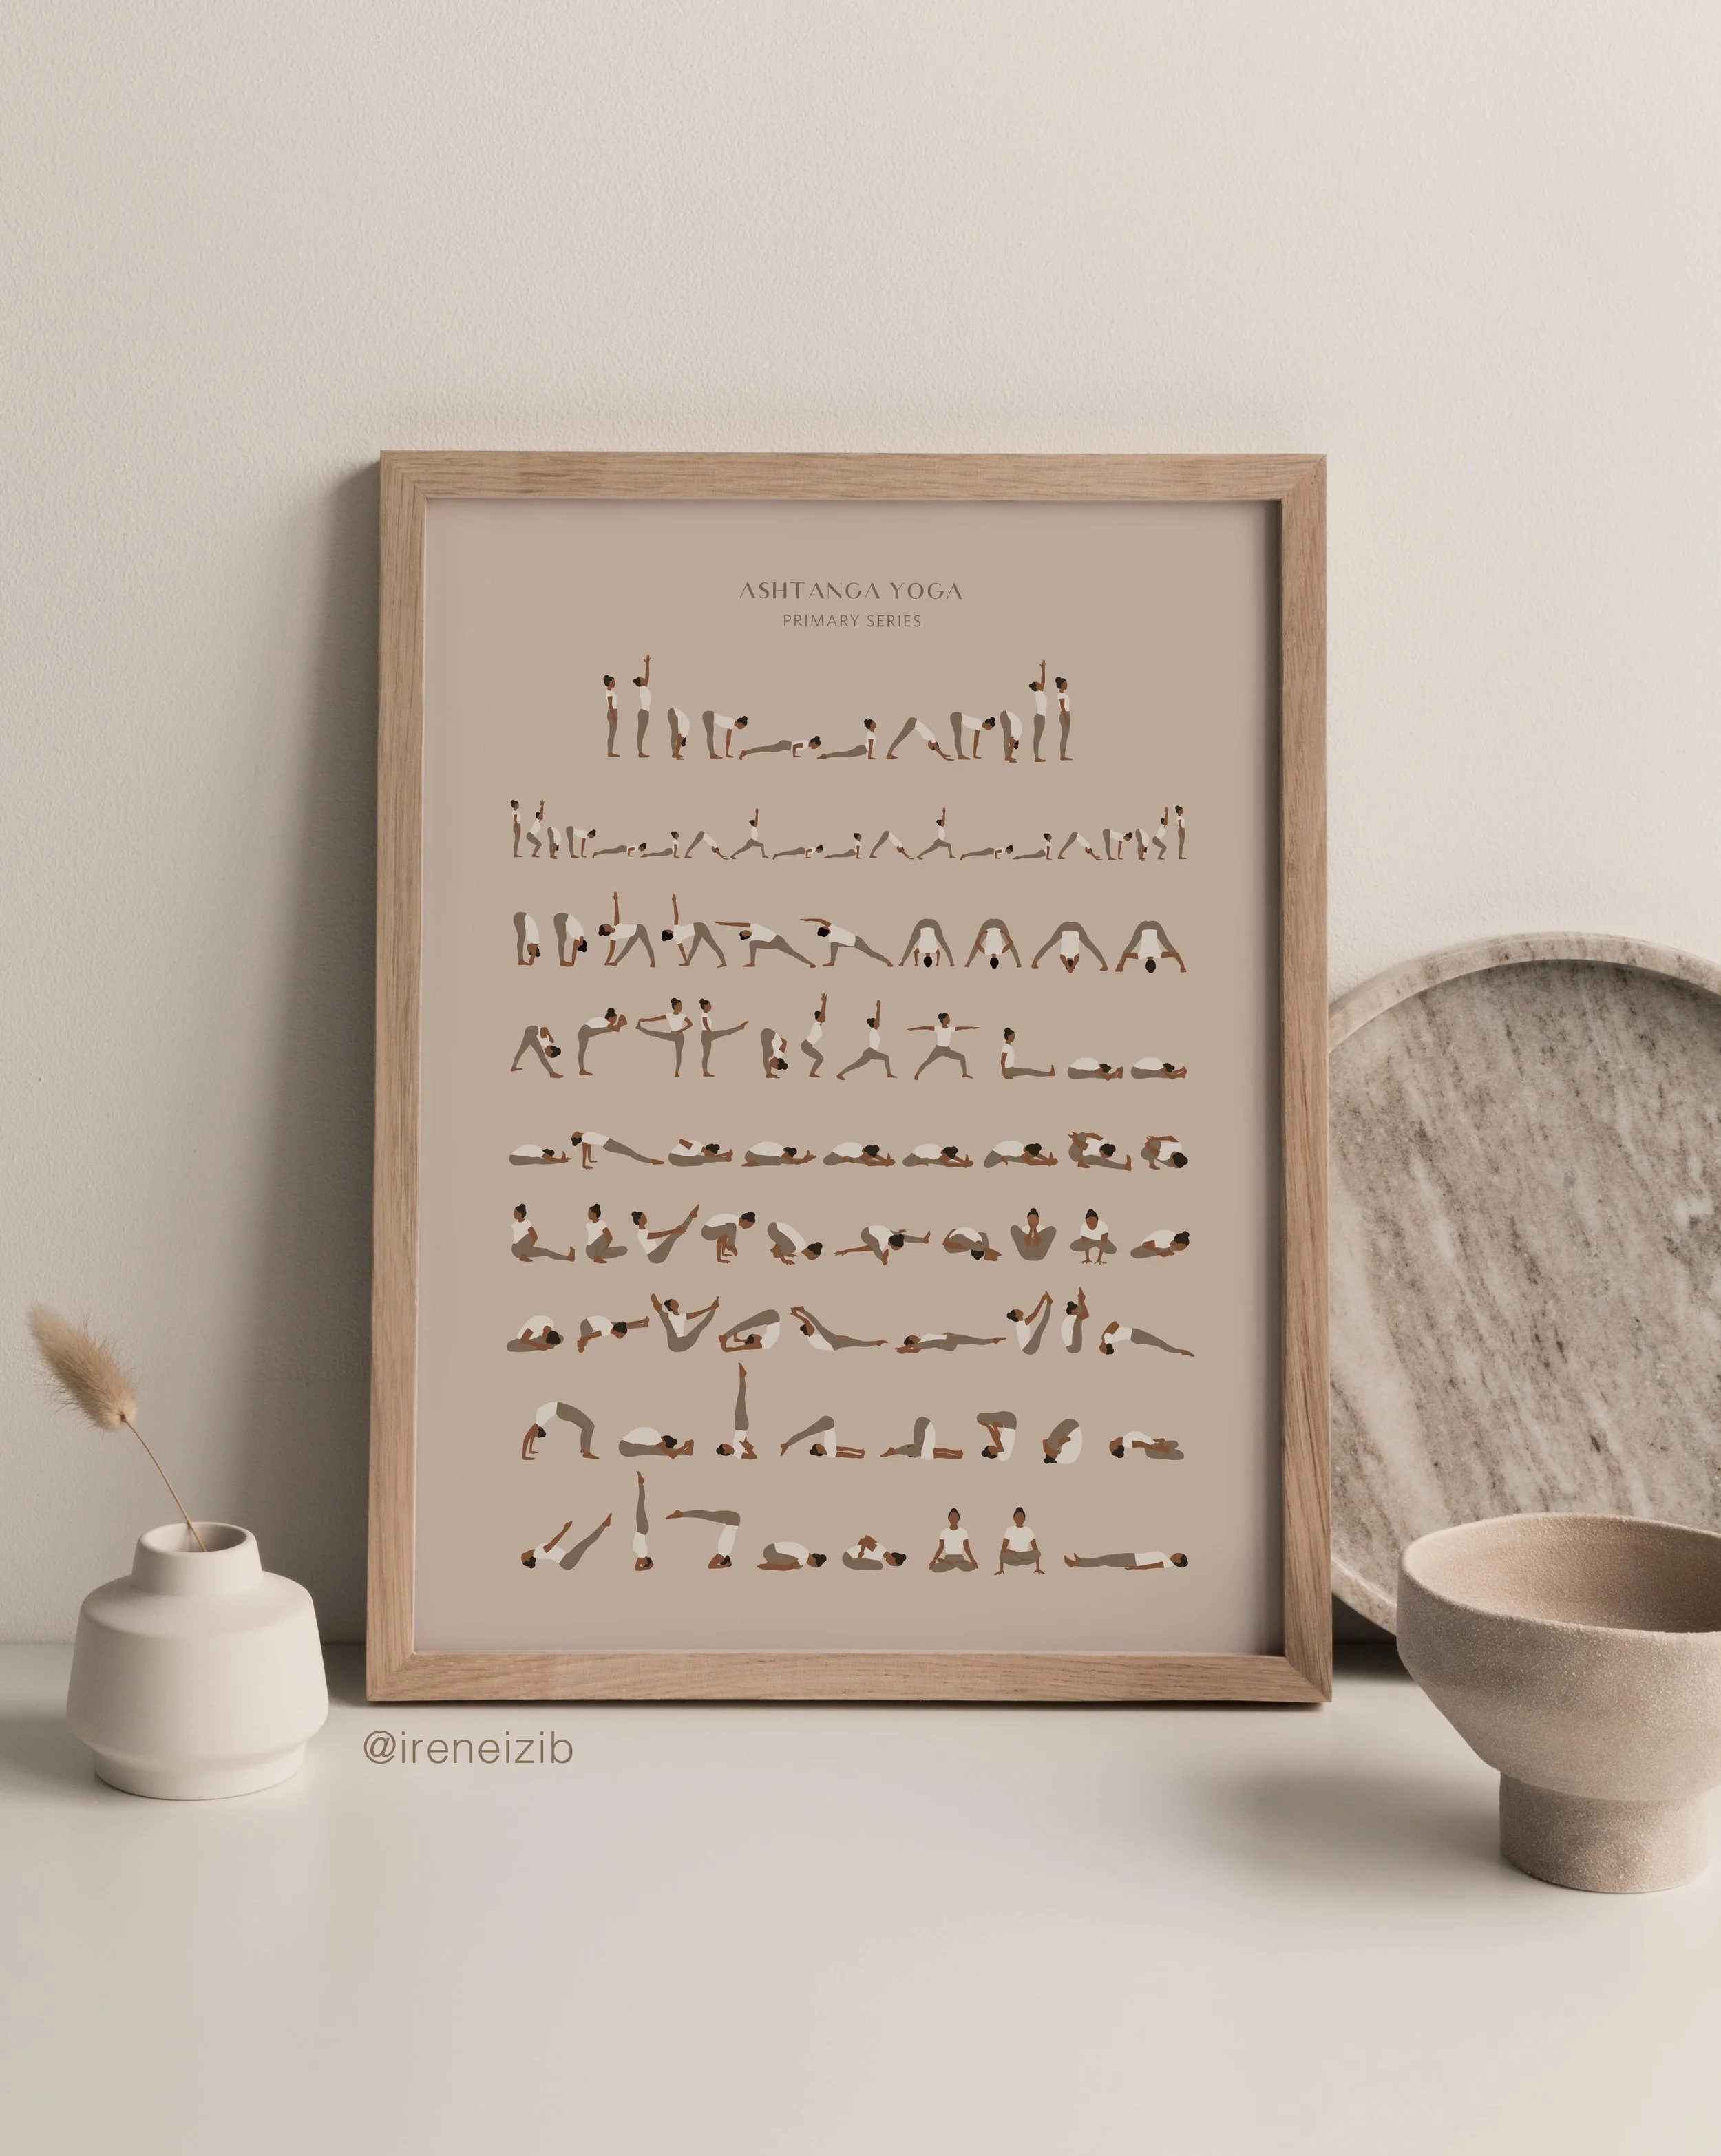 ASHTANGA YOGA
PRIMARY SERIES
@ireneizib